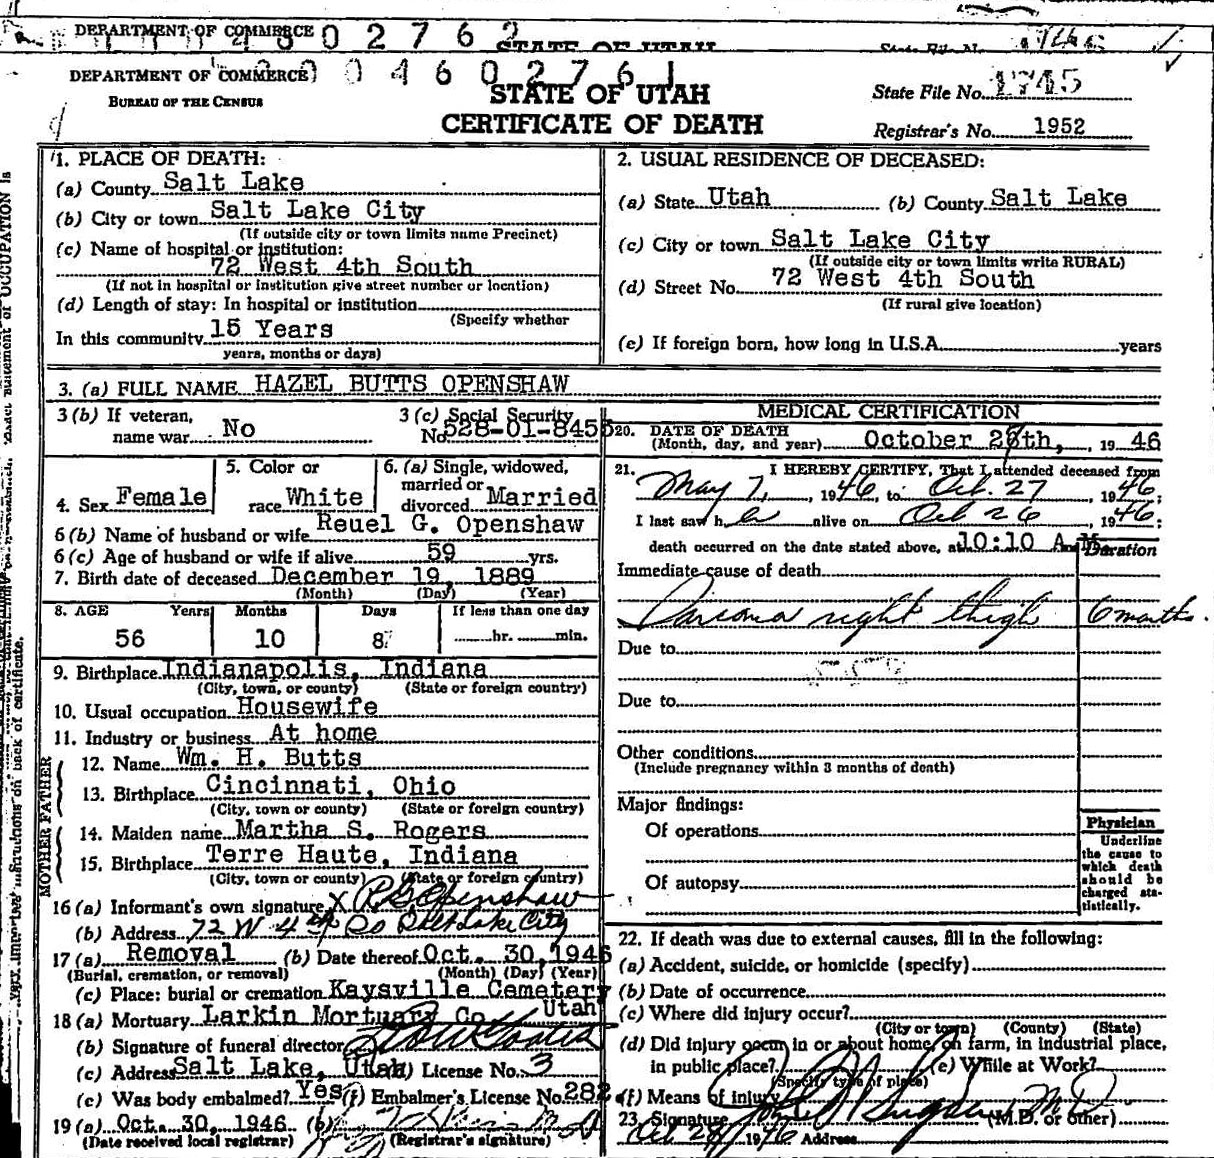 DEPARTMENT OF COMMERCE
STATE OF UTAH
DEPARTMENT OF COMMERCE
BUREAU OF THE CENSUS
STATE OF UTAH
CERTIFICATE OF DEATH
State File No. 1745
Registrar's No. 1952
1. PLACE OF DEATH:
(a) County Salt Lake
(b) City or town Salt Lake City
(If outside city or town limits name Precinct)
(c) Name of hospital or institution:
72 West 4th South
(If not in hospital or institution give street number or location)
(d) Length of stay: In hospital or institution
(Specify whether
In this community 15 Years
years, months or days)
2. USUAL RESIDENCE OF DECEASED:
(a) State Utah (b) County Salt Lake
(c) City or town Salt Lake City
(If outside city or town limits write RURAL)
(d) Street No. 72 West 4th South
(If rural give location)
(e) If foreign born, how long in U.S.A. years
3. (a) FULL NAME HAZEL BUTTS OPENSHAW
3 (b) If veteran,
name war No
3 (c) Social Security
No. 528-01-8455
4. Sex Female
5. Color or
race White
6. (a) Single, widowed,
married or
divorced Married
6 (b) Name of husband or wife Reuel G. Openshaw
6 (c) Age of husband or wife if alive 59 yrs.
7. Birth date of deceased December 19, 1889
(Month) (Day) (Year)
8. AGE Years Months Days If less than one day
56 10 8 hr. min.
9. Birthplace Indianapolis, Indiana
(City, town, or county) (State or foreign country)
10. Usual occupation Housewife
11. Industry or business At home
FATHER
12. Name Wm. H. Butts
13. Birthplace Cincinnati, Ohio
(City, town or county) (State or foreign country)
MOTHER
14. Maiden name Martha S. Rogers
15. Birthplace Terre Haute, Indiana
(City, town or county) (State or foreign country)
16 (a) Informant's own signature X R G Openshaw
(b) Address 72 W 4th So Salt Lake City
17 (a) Removal (b) Date thereof Oct. 30, 1946
(Burial, cremation, or removal) (Month) (Day) (Year)
(c) Place: burial or cremation Kaysville Cemetery
Utah
18 (a) Mortuary Larkin Mortuary Co
(b) Signature of funeral director
(c) Address Salt Lake, Utah (d) License No. 3
(e) Was body embalmed? Yes (f) Embalmer's License No. 282
19 (a) Oct. 30, 1946 (b)
(Date received local registrar) (Registrar's signature)
MEDICAL CERTIFICATION
20. DATE OF DEATH
(Month, day, and year) October 27th, 19 46
21. I HEREBY CERTIFY, That I attended deceased from
May 7, 1946, to Oct. 27, 1946;
I last saw her alive on Oct 26, 1946;
death occurred on the date stated above, at 10:10 A.M.
Duration
Immediate cause of death
Sarcoma right thigh 6 months.
Due to
Due to
Other conditions
(Include pregnancy within 3 months of death)
Major findings:
Of operations
Of autopsy
Physician
Underline
the cause to
which death
should be
charged sta-
tistically.
22. If death was due to external causes, fill in the following:
(a) Accident, suicide, or homicide (specify)
(b) Date of occurrence
(c) Where did injury occur?
(City or town) (County) (State)
(d) Did injury occur in or about home, on farm, in industrial place,
in public place? (e) While at Work?
(Specify type of place)
(f) Means of injury
23. Signature M.D. (M.D. or other)
Oct 28, 1946 Address